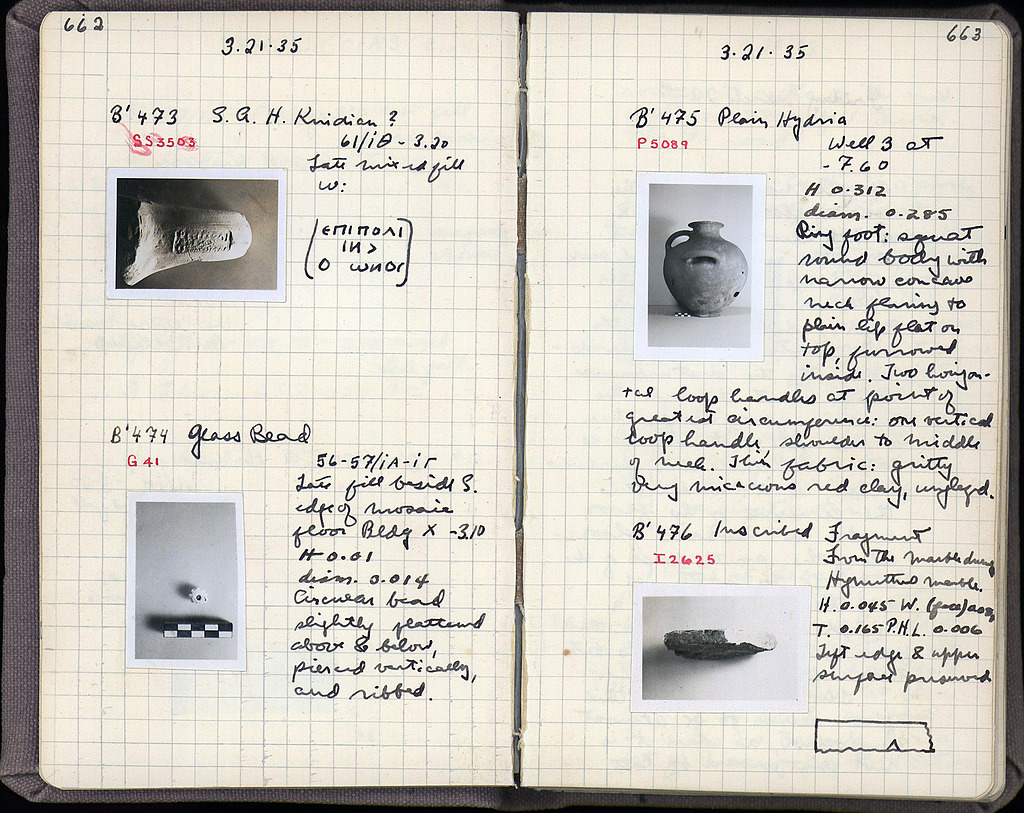 662
3.21.35
B' 473 S. A. H. Knidian ?
SS3503
61/ΙΘ - 3.20
Late mixed fill
w:
ΕΠΙΠΟΛΙ
Ο ΩΝΟC
B' 474 Glass Bead
G 41
56-57/ΙΑ-ΙΓ
Late fill beside S.
edge of mosaic
floor Bldg X -3.10
H 0.01
diam. 0.014
Circular bead
slightly flattened
above & below,
pierced vertically,
and ribbed.
663
3.21.35
B' 475 Plain Hydria
P5089
Well 3 at
- 7.60
H 0.312
diam. 0.285
Ring foot: squat
round body with
narrow concave
neck flaring to
plain lip flat on
top, furrowed
inside. Two horizon-
tal loop handles at point of
greatest circumference: one vertical
loop handle, shoulder to middle
of neck. Thin fabric: gritty
very micaceous red clay, unglazed.
B' 476 Inscribed Fragment
I 2625
From the marble dump
Hymettian marble.
H. 0.045 W. (face)
T. 0.165 P.H.L. 0.006
Left edge & upper
surface preserved
Λ